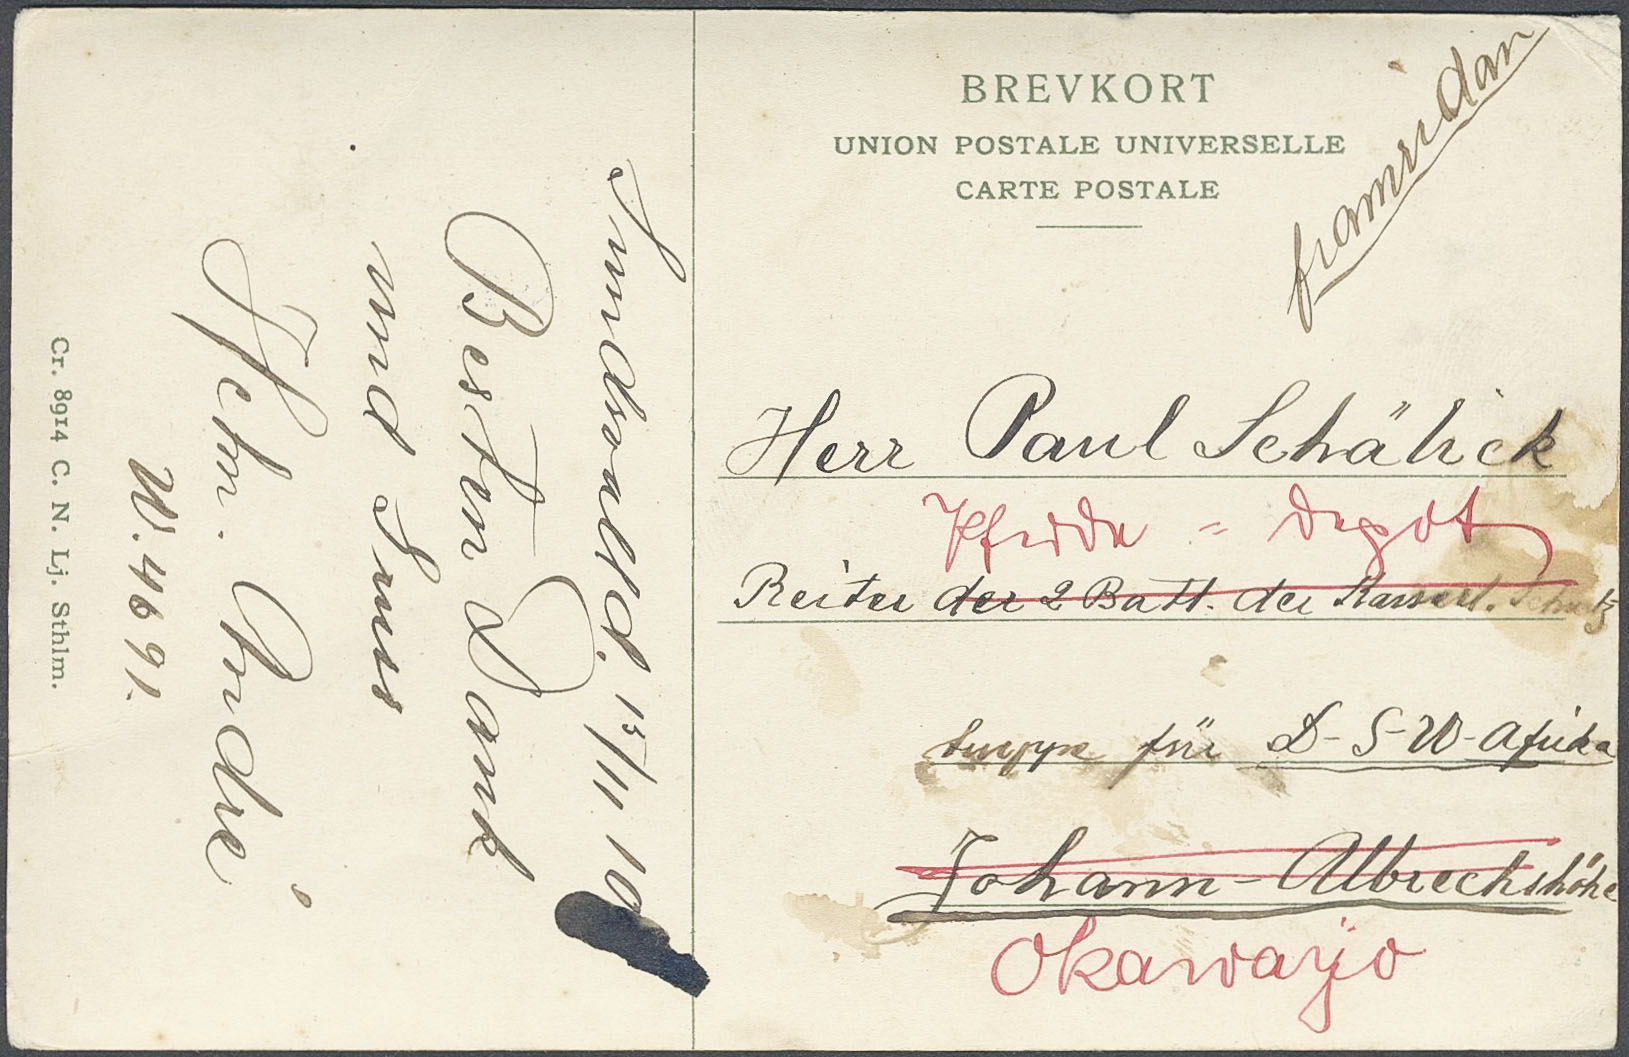 Sundsvall d. 13/11. 10
Besten Dank
und Gruss
Hchn. André
W. 4691.
Cr. 8914 C. N. Lj. Sthlm.
BREVKORT
UNION POSTALE UNIVERSELLE
CARTE POSTALE
framsidan
Herr Paul Schälick
Pferde = Depot
Reiter der 2 Batt. der Kaiserl. Schutz
truppe für D-S-W-Afrika
Johann-Albrechtshöhe
Okawayo